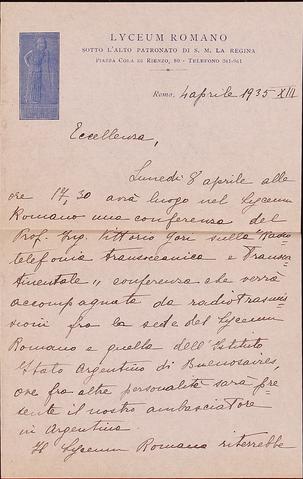 LYCEUM ROMANO
SOTTO L'ALTO PATRONATO DI S. M. LA REGINA
PIAZZA COLA DI RIENZO, 80 - TELEFONO 361-961
Roma, 4 aprile 1935 XIII
Eccellenza,
Lunedì 8 aprile alle
ore 17,30 avrà luogo nel Lyceum
Romano una conferenza del
Prof. Ing. Vittorio Gori sulla "Radio
telefonia transoceanica e Transcon
tinentale" conferenza che verrà
accompagnata da radiotrasmis
sioni fra la sede del Lyceum
Romano e quella dell'Istituto
Italo Argentino di Buenosaires,
ove fra altre personalità sarà pre
sente il nostro ambasciatore
in Argentina.
Il Lyceum Romano riterrebbe